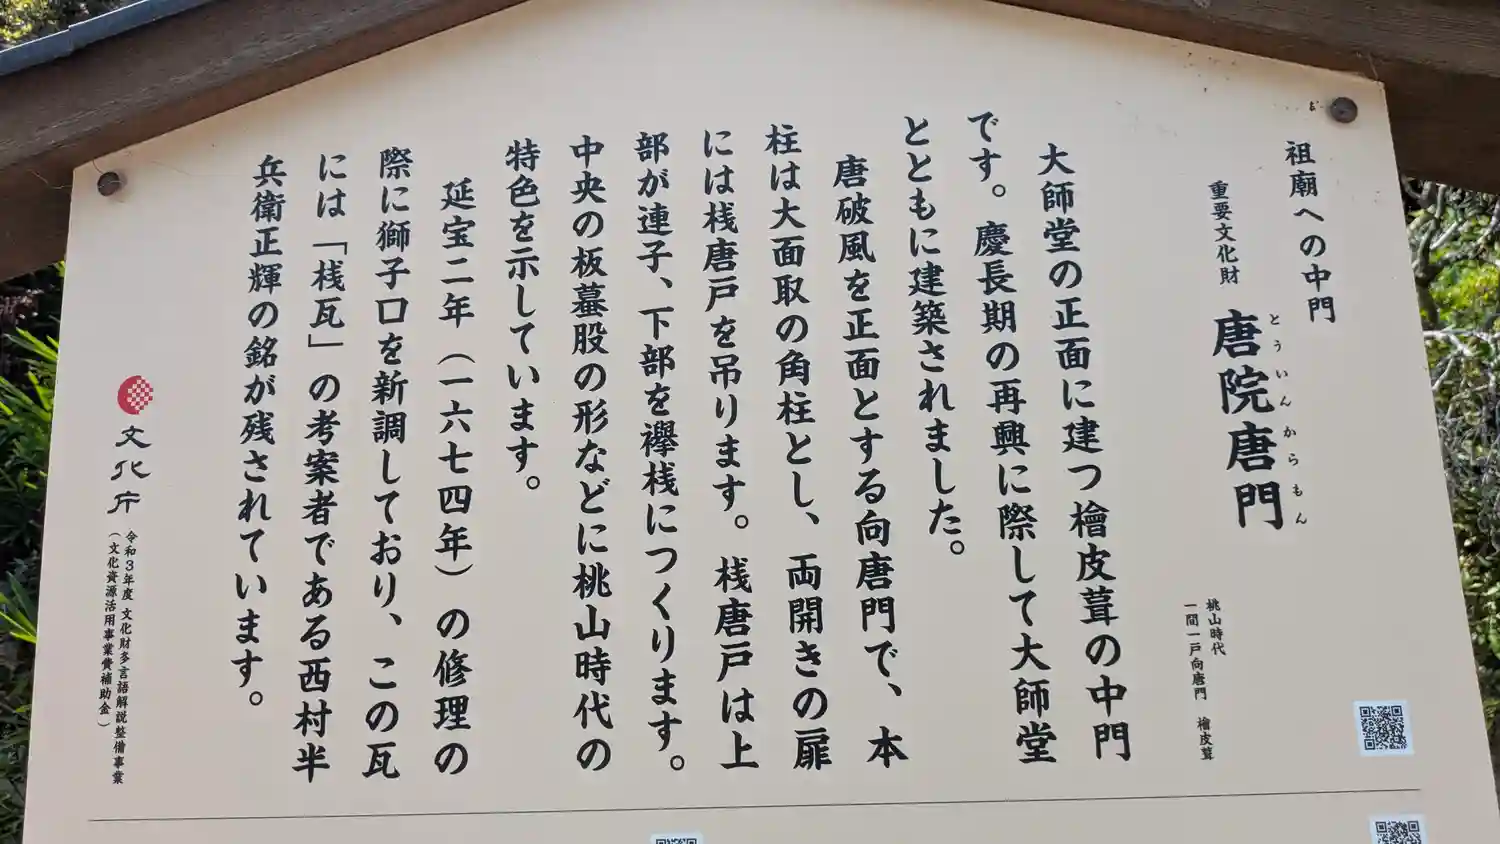 祖廟への中門
重要文化財 唐院唐門
とういんからもん
桃山時代
一間一戸向唐門 檜皮葺
大師堂の正面に建つ檜皮葺の中門
です。慶長期の再興に際して大師堂
とともに建築されました。
唐破風を正面とする向唐門で、本
柱は大面取の角柱とし、両開きの扉
には桟唐戸を吊ります。桟唐戸は上
部が連子、下部を襷桟につくります。
中央の板蟇股の形などに桃山時代の
特色を示しています。
延宝二年（一六七四年）の修理の
際に獅子口を新調しており、この瓦
には「桟瓦」の考案者である西村半
兵衛正輝の銘が残されています。
文化庁
令和3年度 文化財多言語解説整備事業
（文化資源活用事業費補助金）